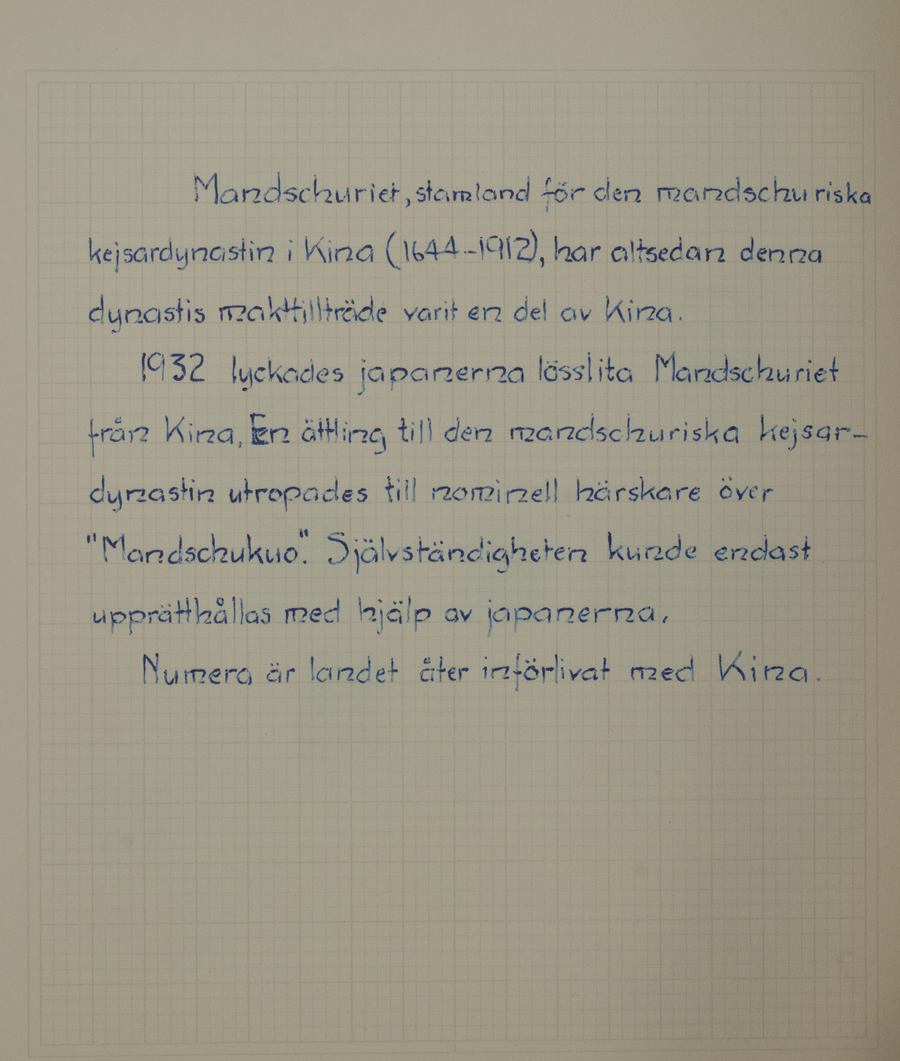 Mandschuriet, stamland för den mandschuriska
kejsardynastin i Kina (1644-1912), har altsedan denna
dynastis makttillträde varit en del av Kina.
1932 lyckades japanerna lösslita Mandschuriet
från Kina, En ättling till den mandschuriska kejsar-
dynastin utropades till nominell härskare över
"Mandschukuo". Självständigheten kunde endast
upprätthållas med hjälp av japanerna.
Numera är landet åter införlivat med Kina.